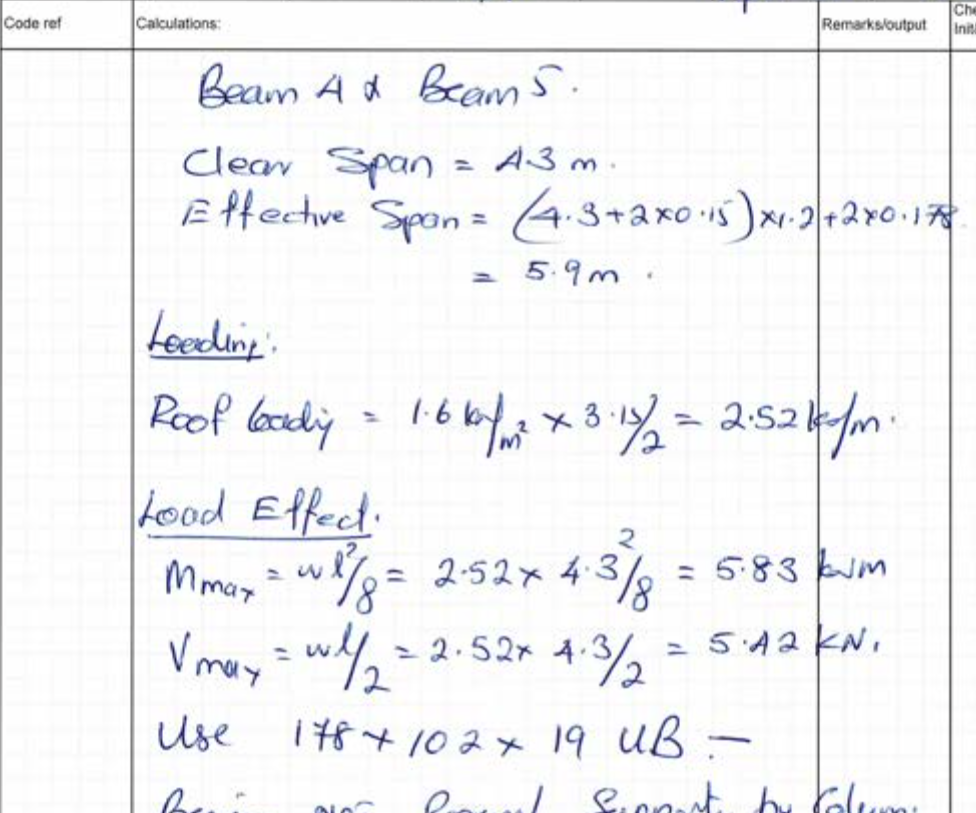 Code ref
Calculations:
Remarks/output
Che
Initi
Beam 4 & Beam 5.
Clear Span = 4.3 m.
Effective Span = (4.3+2×0.15)×1.2+2×0.178
= 5.9 m.
Loading:
Roof loading = 1.6 kN/m² × 3.15/2 = 2.52 kN/m.
Load Effect.
Mmax = wl²/8 = 2.52× 4.3²/8 = 5.83 kNm
Vmax = wl/2 = 2.52× 4.3/2 = 5.42 kN.
Use 178 × 102 × 19 UB —
Support by Column.